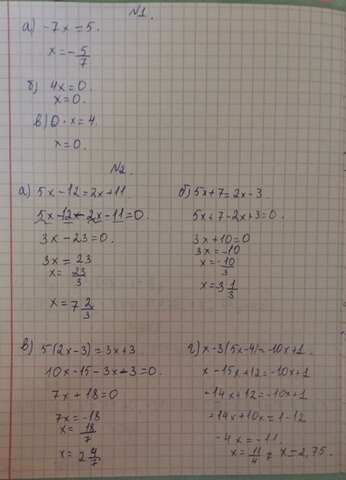 №1.
а) -7x = 5.
x = -5/7
б) 4x = 0.
x = 0.
в) 0 · x = 4
x = 0.
№2.
а) 5x - 12 = 2x + 11
5x - 12 - 2x - 11 = 0.
3x - 23 = 0.
3x = 23
x = 23/3
x = 7 2/3
б) 5x + 7 = 2x - 3.
5x + 7 - 2x + 3 = 0.
3x + 10 = 0
3x = -10
x = -10/3
x = 3 1/3
в) 5(2x - 3) = 3x + 3
10x - 15 - 3x - 3 = 0.
7x + 18 = 0
7x = -18
x = 18/7
x = 2 4/7
г) x - 3(5x - 4) = -10x + 1.
x - 15x + 12 = -10x + 1
-14x + 12 = -10x + 1
-14x + 10x = 1 - 12
-4x = -11.
x = 11/4 x = 2,75.